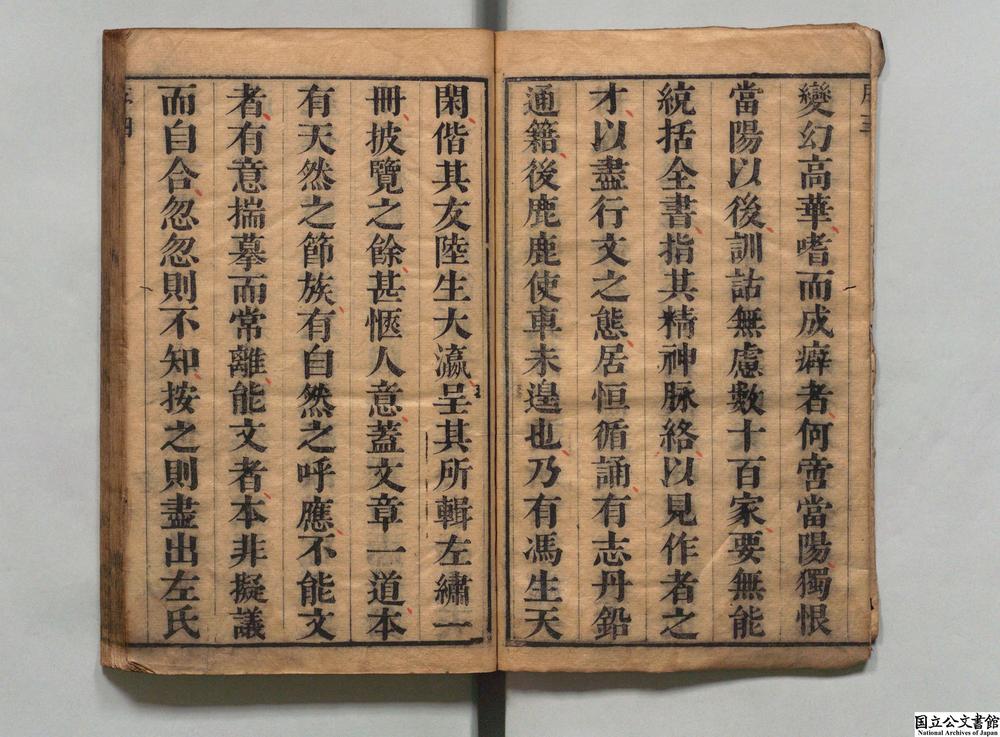 變幻高華嗜而成癖者何啻當陽獨恨
當陽以後訓詁無慮數十百家要無能
統括全書指其精神脉絡以見作者之
才以盡行文之態居恒循誦有志丹鉛
通籍後鹿鹿使車未遑也乃有馮生天
閑偕其友陸生大瀛呈其所輯左繡一
冊披覽之餘甚愜人意蓋文章一道本
有天然之節族有自然之呼應不能文
者有意揣摹而常離能文者本非擬議
而自合忽忽則不知按之則盡出左氏
国立公文書館
National Archives of Japan